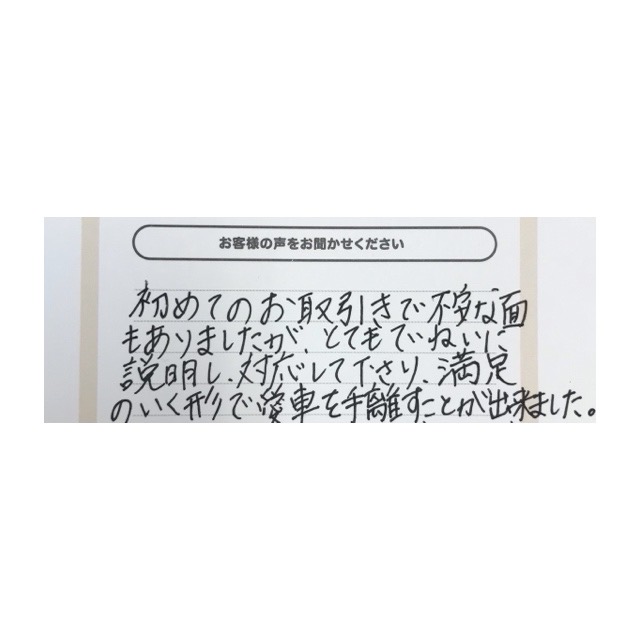 お客様の声をお聞かせください
初めてのお取引きで不安な面
もありましたが、とてもていねいに
説明し、対応して下さり、満足
のいく形で愛車を手離すことが出来ました。